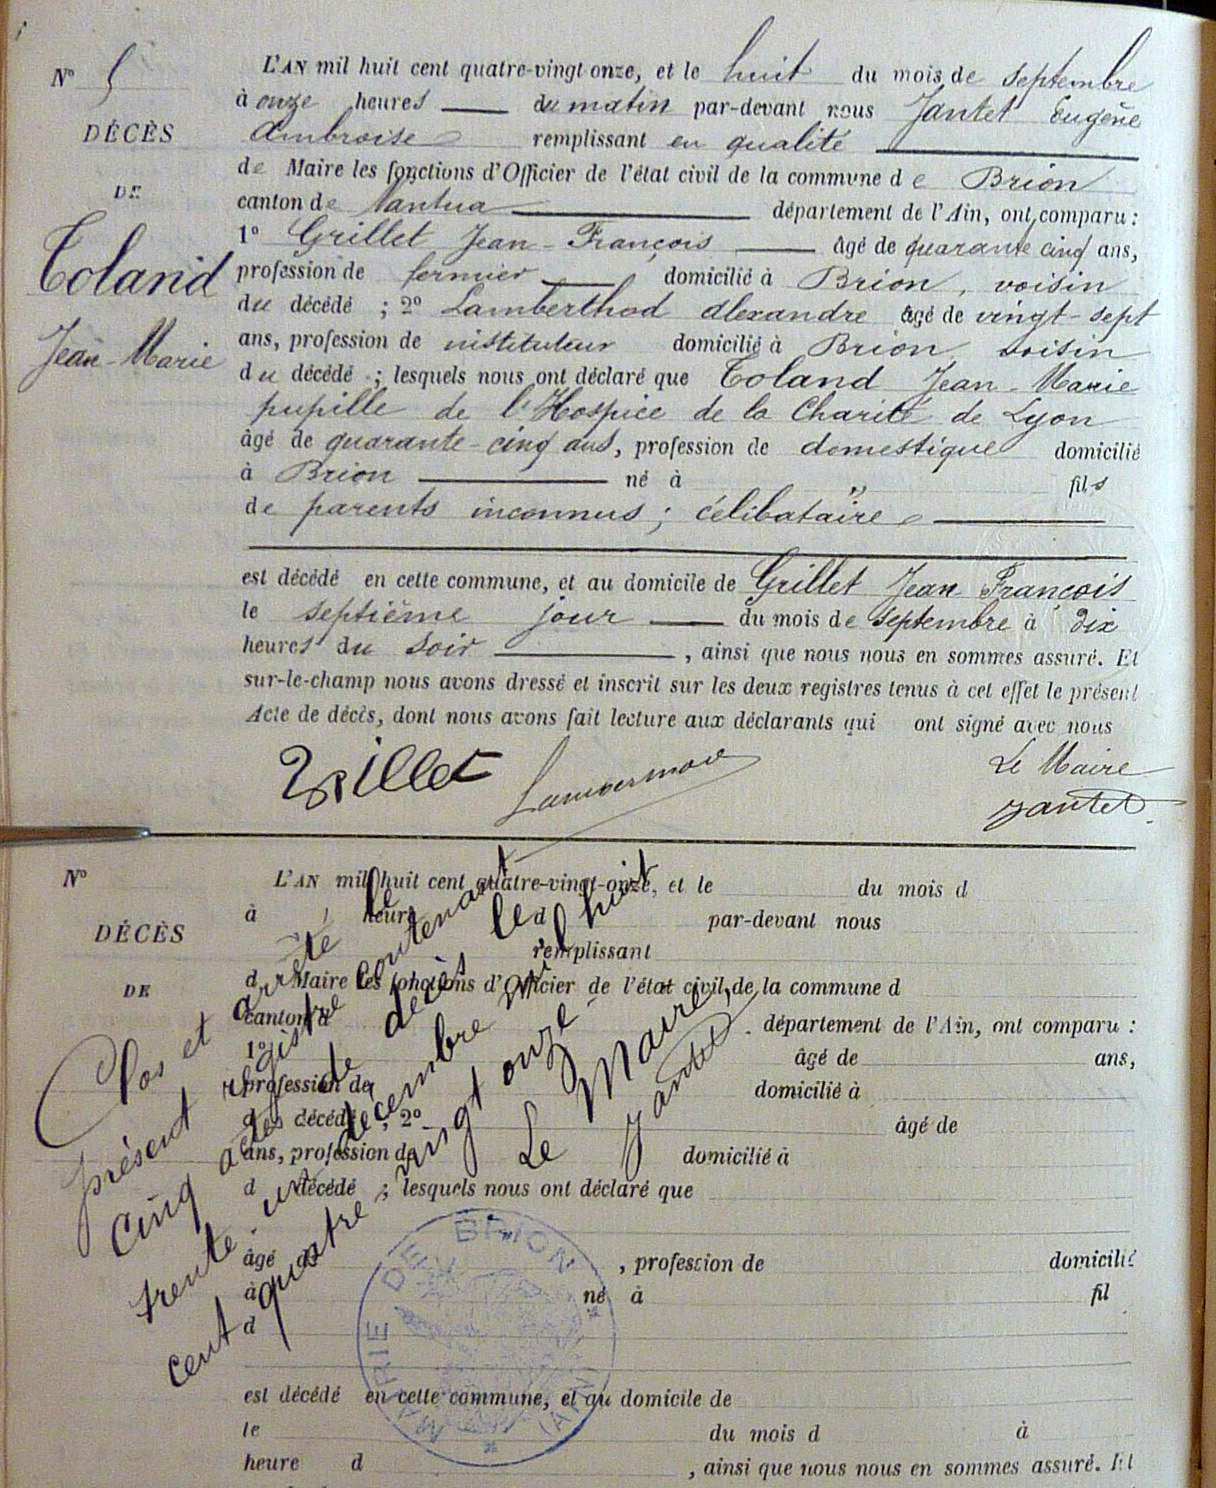 N° 5
DÉCÈS
DE
Toland
Jean-Marie
L'AN mil huit cent quatre-vingt-onze, et le huit du mois de septembre
à onze heures du matin par-devant nous Jantet Eugène
Ambroise remplissant en qualité
de Maire les fonctions d'Officier de l'état civil de la commune de Brion
canton de Nantua département de l'Ain, ont comparu :
1° Grillet Jean-François âgé de quarante cinq ans,
profession de fermier domicilié à Brion, voisin
du décédé ; 2° Lamberthod Alexandre âgé de vingt-sept
ans, profession de instituteur domicilié à Brion, voisin
du décédé ; lesquels nous ont déclaré que Toland Jean-Marie
pupille de l'Hospice de la Charité de Lyon
âgé de quarante-cinq ans, profession de domestique domicilié
à Brion né à " fils
de parents inconnus ; célibataire
est décédé en cette commune, et au domicile de Grillet Jean François
le septième jour du mois de septembre à dix
heures du soir , ainsi que nous nous en sommes assuré. Et
sur-le-champ nous avons dressé et inscrit sur les deux registres tenus à cet effet le présent
Acte de décès, dont nous avons fait lecture aux déclarants qui ont signé avec nous
Grillet
Le Maire
Jantet
N°
DÉCÈS
DE
L'AN mil huit cent quatre-vingt-onze, et le du mois d
à heure d par-devant nous
remplissant
d Maire les fonctions d'Officier de l'état civil de la commune d
canton d département de l'Ain, ont comparu :
1° âgé de ans,
profession de domicilié à
d décédé ; 2° âgé de
ans, profession de domicilié à
d décédé ; lesquels nous ont déclaré que
âgé d , profession de domicilié
à né à fil
d
est décédé en cette commune, et au domicile de
le du mois d à
heure d , ainsi que nous nous en sommes assuré. Et
Clos et arrêté le
présent registre contenant
cinq actes de décès le
trente-un décembre mil huit
cent quatre vingt onze.
Le Maire,
Jantet
MAIRIE DE BRION
(AIN)